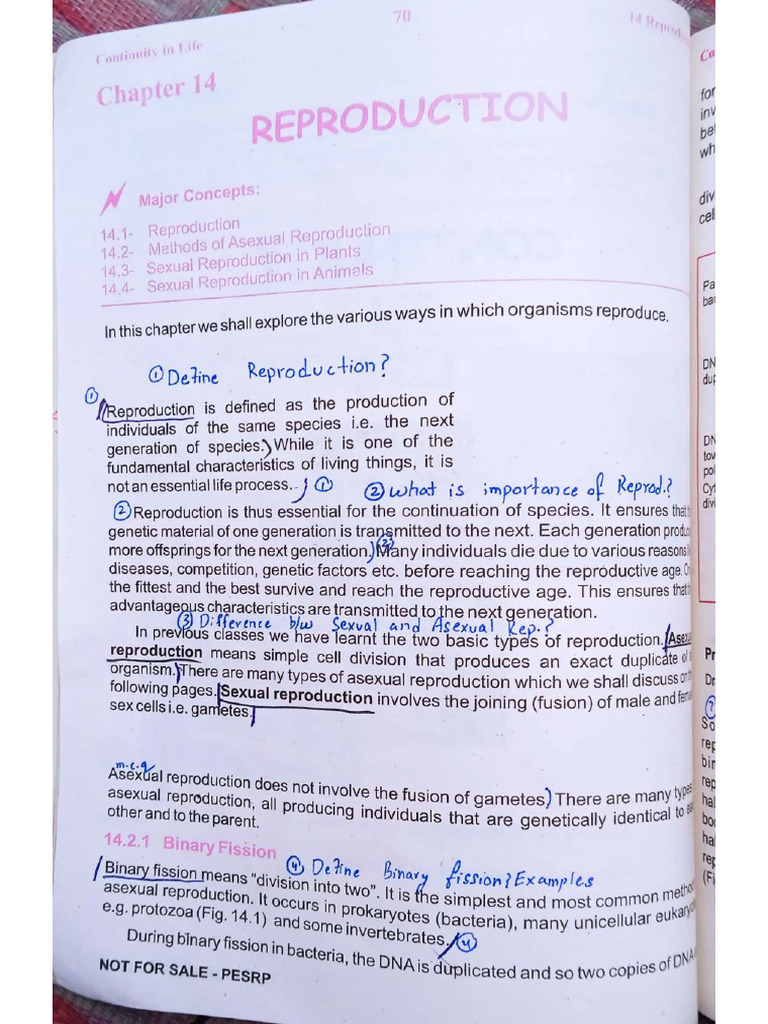 Continuity in Life 70 14 Reprodu
Chapter 14
REPRODUCTION
Major Concepts:
14.1- Reproduction
14.2- Methods of Asexual Reproduction
14.3- Sexual Reproduction in Plants
14.4- Sexual Reproduction in Animals
In this chapter we shall explore the various ways in which organisms reproduce.
① Define Reproduction?
① Reproduction is defined as the production of
individuals of the same species i.e. the next
generation of species. While it is one of the
fundamental characteristics of living things, it is
not an essential life process. ① ② What is importance of Reprod.?
② Reproduction is thus essential for the continuation of species. It ensures that
genetic material of one generation is transmitted to the next. Each generation produ
more offsprings for the next generation. Many individuals die due to various reasons
diseases, competition, genetic factors etc. before reaching the reproductive age. O
the fittest and the best survive and reach the reproductive age. This ensures that
advantageous characteristics are transmitted to the next generation.
③ Difference b/w Sexual and Asexual Rep.?
In previous classes we have learnt the two basic types of reproduction. Asex
reproduction means simple cell division that produces an exact duplicate of
organism. There are many types of asexual reproduction which we shall discuss on
following pages. Sexual reproduction involves the joining (fusion) of male and fem
sex cells i.e. gametes.
m.c.q
Asexual reproduction does not involve the fusion of gametes. There are many types
asexual reproduction, all producing individuals that are genetically identical to
other and to the parent.
14.2.1 Binary Fission
④ Define Binary fission? Examples
Binary fission means "division into two". It is the simplest and most common metho
asexual reproduction. It occurs in prokaryotes (bacteria), many unicellular eukaryo
e.g. protozoa (Fig. 14.1) and some invertebrates. ④
During binary fission in bacteria, the DNA is duplicated and so two copies of DNA
NOT FOR SALE - PESRP